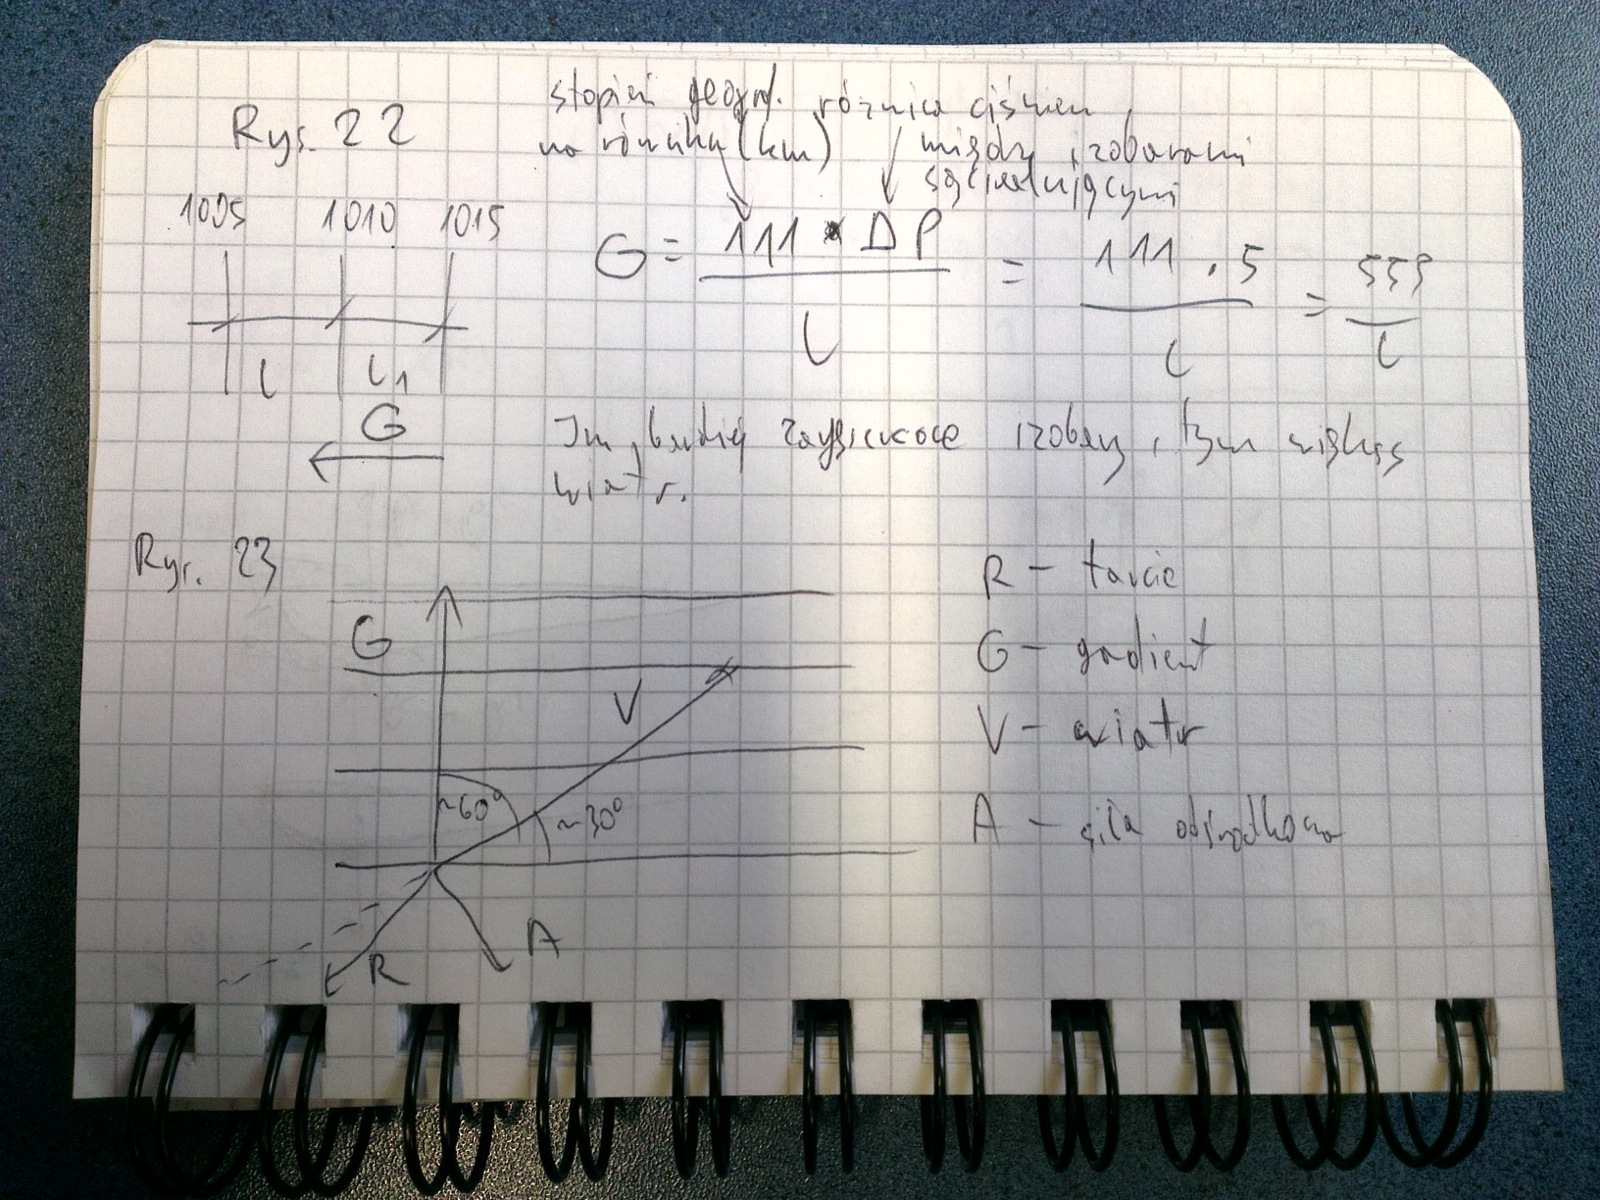 Rys. 22
stopień geogr.
na równiku (km)
różnica ciśnień
między izobarami
sąsiadującymi
1005 1010 1015
G = 111 · Δ P / l = 111 . 5 / l = 555 / l
l l1
G
Im bardziej zagęszczone izobary, tym większy
wiatr.
Rys. 23
G
V
~60°
~30°
R
A
R - tarcie
G - gradient
V - wiatr
A - siła odśrodkowa